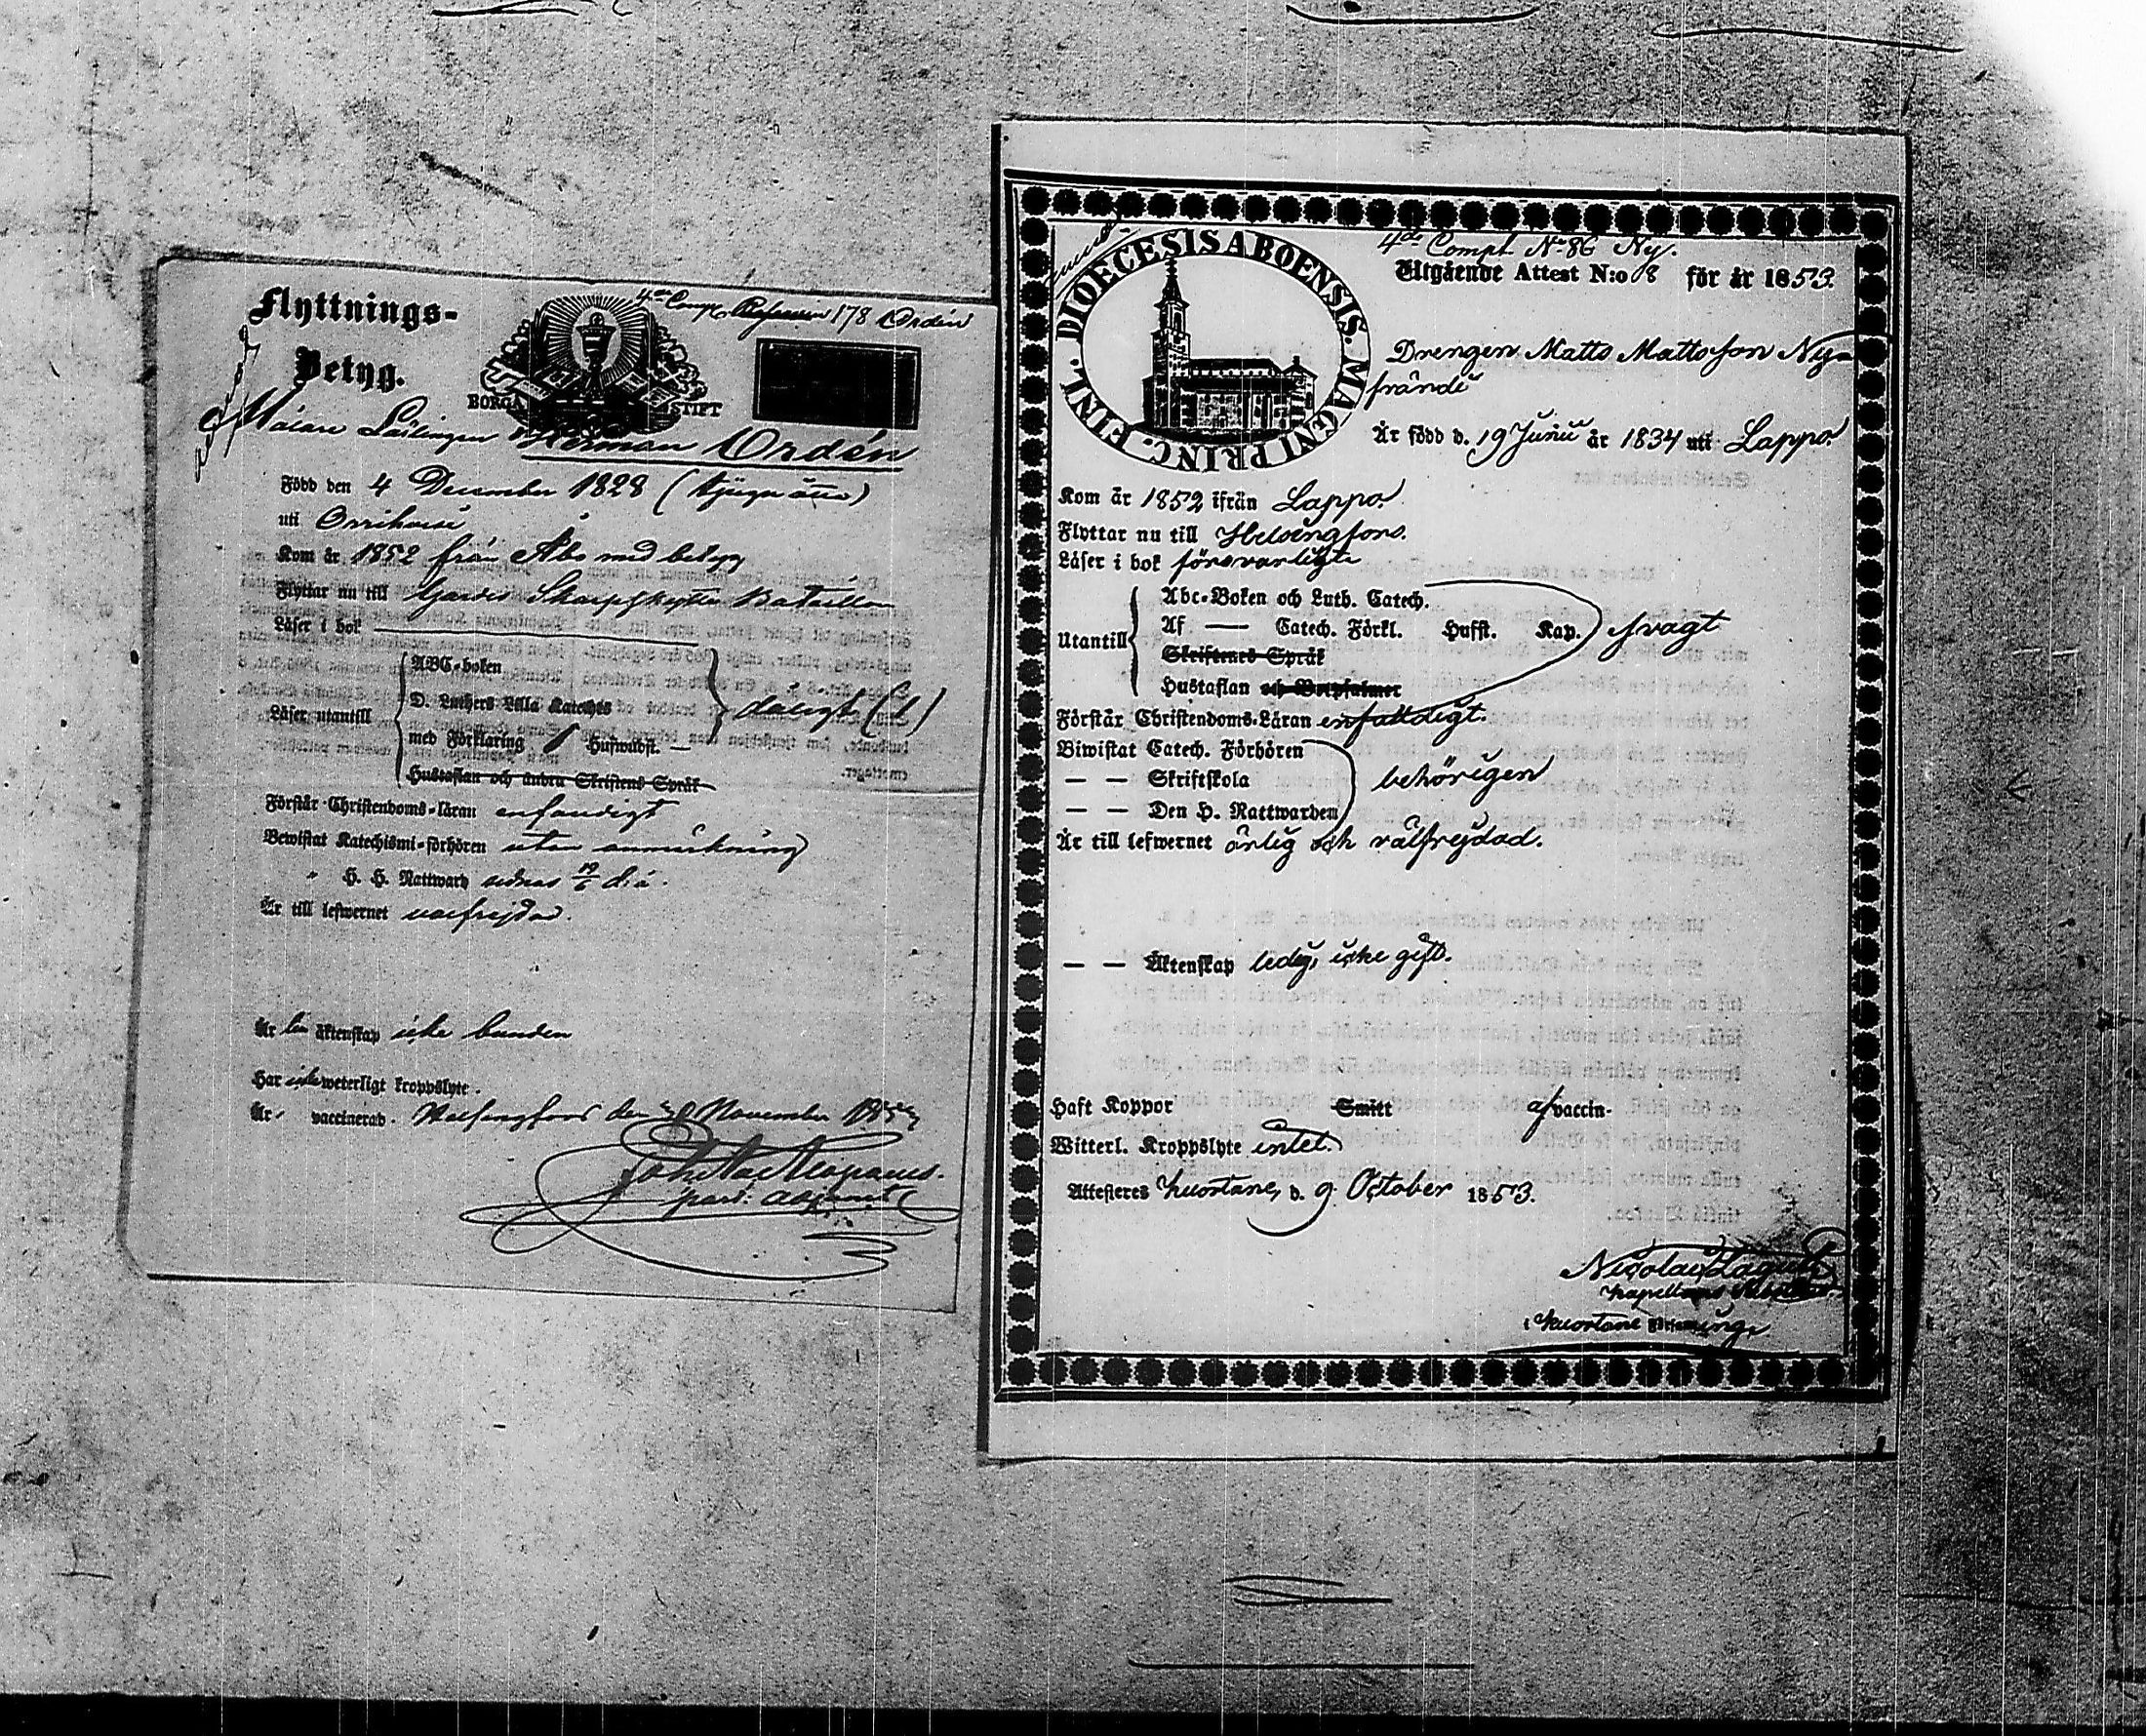 4de Comp. 178 Ordén
Flyttnings-
Betyg.
BORGÅ STIFT
Målare Herman Ordén
Född den 4 December 1828 (tjugu åtta)
uti Orrihuisi
Kom år 1852 från Åbo med betyg
Flyttar nu till Gardes Skarpskytte Bataillon
Läser i bok
ABC-boken
D. Luthers Lilla Kateches
Läser utantill dåligt (l)
med Förklaring Hufwudst. —
Hustaflan och andra Skriftens Språk
Förstår Christendoms-läran enfaldigt
Bewistat Katechismi-förhören utan anmärkning
" H. H. Nattward sednas d. å.
Är till lefwernet välfrejdad.
Är i äktenskap icke bunden
Har icke weterligt kroppslyte.
Är vaccinerad. Helsingfors den November
DIOECESIS ABOENSIS. MAGNI PRINC. FINL.
4de Comp. N:86 Ny.
Utgående Attest N:o 8 för år 1853.
Drengen Matts Mattsson Ny-
frände
Är född d. 19 Junii år 1834 uti Lappo.
Kom år 1852 ifrån Lappo.
Flyttar nu till Helsingfors.
Läser i bok försvarligt
Abc-Boken och Luth. Catech.
Af — Catech. Förkl. Hufst. Kap.
Utantill svagt
Skriftenes Språk
Hustaflan och Botpsalmer
Förstår Christendoms-Läran enfaldigt.
Biwistat Catech. Förhören
— — Skriftskola behörigen
— — Den H. Nattwarden
Är till lefwernet ärlig och välfrejdad.
— — Äktenskap ledig, icke gift.
Haft Koppor Smitt af vaccin-
Witterl. Kroppslyte intet.
Attesteres Kuortane, d. 9 October 1853.
Nicolaus Lagus
Kapellans
i Kuortane